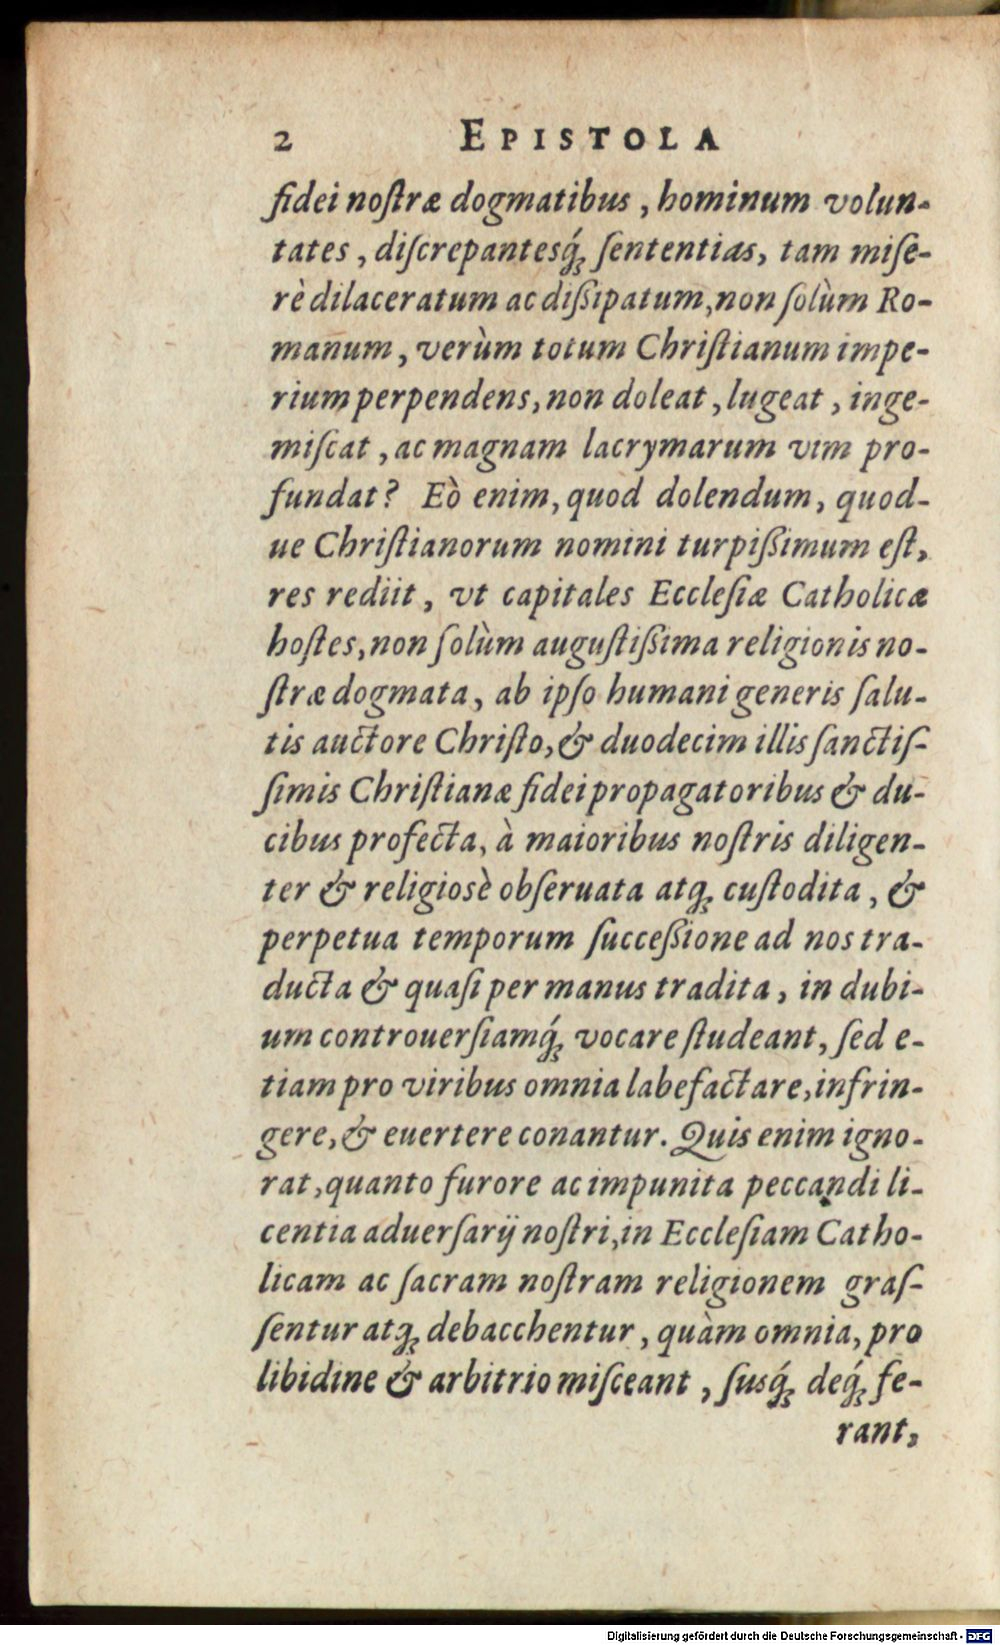 2 EPISTOLA
fidei noſtræ dogmatibus, hominum volun-
tates, diſcrepantesq́; ſententias, tam miſe-
rè dilaceratum ac diſſipatum, non ſolùm Ro-
manum, verùm totum Chriſtianum impe-
rium perpendens, non doleat, lugeat, inge-
miſcat, ac magnam lacrymarum vim pro-
fundat? Eò enim, quod dolendum, quod-
ue Chriſtianorum nomini turpiſſimum eſt,
res rediit, vt capitales Eccleſiæ Catholicæ
hoſtes, non ſolùm auguſtiſſima religionis no-
ſtræ dogmata, ab ipſo humani generis ſalu-
tis auctore Chriſto, & duodecim illis ſanctiſ-
ſimis Chriſtianæ fidei propagatoribus & du-
cibus profecta, à maioribus noſtris diligen-
ter & religiosè obſeruata atq; cuſtodita, &
perpetua temporum ſucceſſione ad nos tra-
ducta & quaſi per manus tradita, in dubi-
um controuerſiamq́; vocare ſtudeant, ſed e-
tiam pro viribus omnia labefactare, infrin-
gere, & euertere conantur. Quis enim igno-
rat, quanto furore ac impunita peccandi li-
centia aduerſarij noſtri, in Eccleſiam Catho-
licam ac ſacram noſtram religionem graſ-
ſentur atq; debacchentur, quàm omnia, pro
libidine & arbitrio miſceant, ſusq́; deq́; fe-
rant,
Digitalisierung gefördert durch die Deutsche Forschungsgemeinschaft - DFG